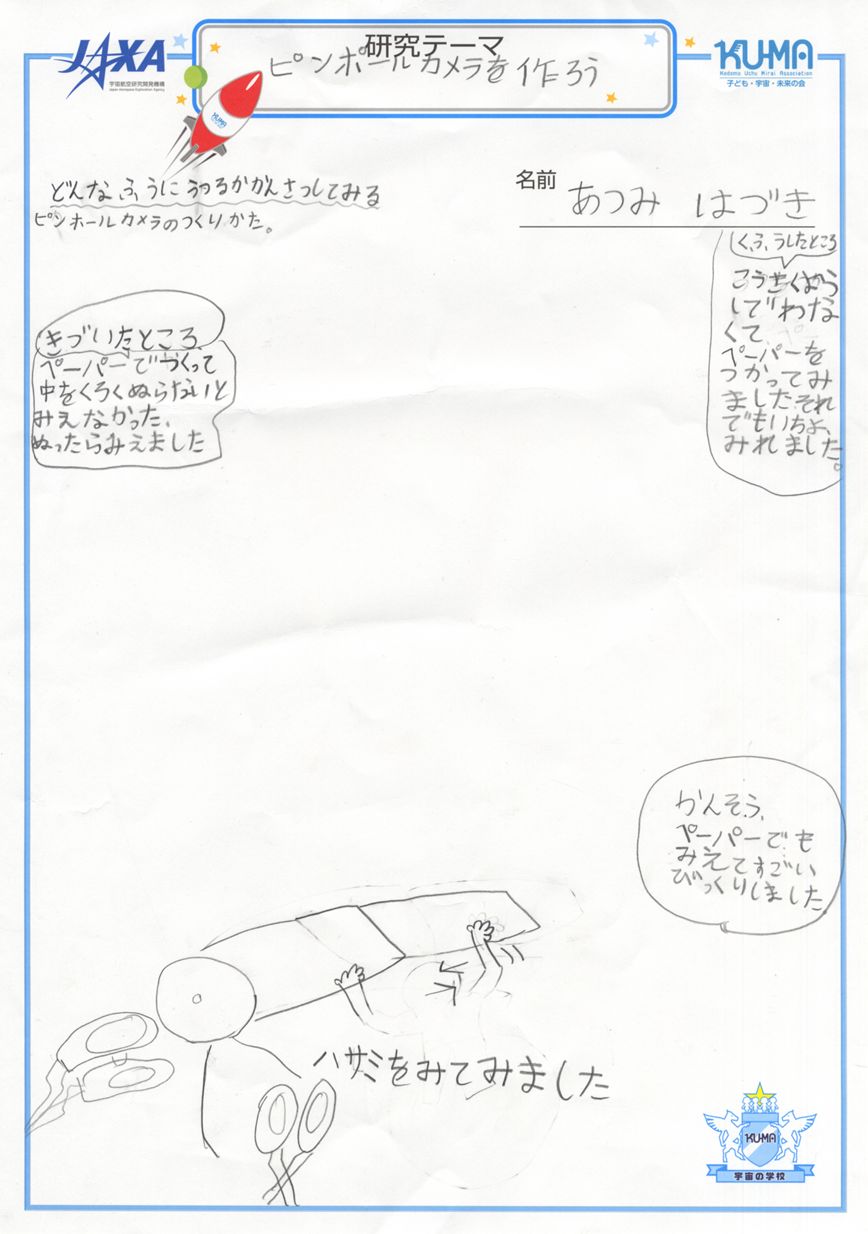 JAXA
宇宙航空研究開発機構
Japan Aerospace Exploration Agency
研究テーマ
ピンホールカメラを作ろう
KUMA
Kodomo Uchu Mirai Association
子ども・宇宙・未来の会
KUMA
どんなふうにうつるかかんさつしてみる
ピンホールカメラのつくりかた。
名前 あつみ はづき
くふうしたところ
こうさくばん
してでわな
くて、
ペーパーを
つかってみ
ました。それ
でもいちよ、
みれました。
きづいたところ、
ペーパーでつくって
中をくろくぬらないと
みえなかった、
ぬったらみえました
かんそう、
ペーパーでも
みえてすごい
びっくりしました
ハサミをみてみました
KUMA
宇宙の学校